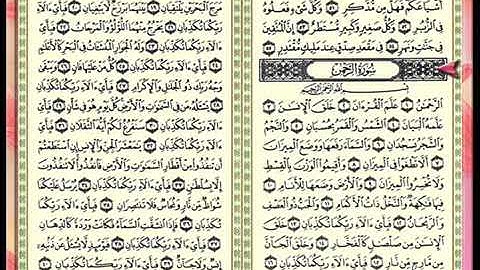 أَشْيَاعَكُمْ فَهَلْ مِن مُّدَّكِرٍ ٥١ وَكُلُّ شَىْءٍ فَعَلُوهُ
فِى ٱلزُّبُرِ ٥٢ وَكُلُّ صَغِيرٍ وَكَبِيرٍ مُّسْتَطَرٌ ٥٣ إِنَّ ٱلْمُتَّقِينَ
فِى جَنَّٰتٍ وَنَهَرٍ ٥٤ فِى مَقْعَدِ صِدْقٍ عِندَ مَلِيكٍ مُّقْتَدِرٍ ٥٥
سُورَةُ الرَّحْمٰن
بِسْمِ ٱللَّهِ ٱلرَّحْمَٰنِ ٱلرَّحِيمِ
ٱلرَّحْمَٰنُ ١ عَلَّمَ ٱلْقُرْءَانَ ٢ خَلَقَ ٱلْإِنسَٰنَ ٣
عَلَّمَهُ ٱلْبَيَانَ ٤ ٱلشَّمْسُ وَٱلْقَمَرُ بِحُسْبَانٍ ٥ وَٱلنَّجْمُ
وَٱلشَّجَرُ يَسْجُدَانِ ٦ وَٱلسَّمَآءَ رَفَعَهَا وَوَضَعَ ٱلْمِيزَانَ
٧ أَلَّا تَطْغَوْا۟ فِى ٱلْمِيزَانِ ٨ وَأَقِيمُوا۟ ٱلْوَزْنَ بِٱلْقِسْطِ
وَلَا تُخْسِرُوا۟ ٱلْمِيزَانَ ٩ وَٱلْأَرْضَ وَضَعَهَا لِلْأَنَامِ ١٠
فِيهَا فَٰكِهَةٌ وَٱلنَّخْلُ ذَاتُ ٱلْأَكْمَامِ ١١ وَٱلْحَبُّ ذُو ٱلْعَصْفِ
وَٱلرَّيْحَانُ ١٢ فَبِأَىِّ ءَالَآءِ رَبِّكُمَا تُكَذِّبَانِ ١٣ خَلَقَ
ٱلْإِنسَٰنَ مِن صَلْصَٰلٍ كَٱلْفَخَّارِ ١٤ وَخَلَقَ ٱلْجَآنَّ
مِن مَّارِجٍ مِّن نَّارٍ ١٥ فَبِأَىِّ ءَالَآءِ رَبِّكُمَا تُكَذِّبَانِ ١٦
مَرَجَ ٱلْبَحْرَيْنِ يَلْتَقِيَانِ ١٩ بَيْنَهُمَا بَرْزَخٌ لَّا يَبْغِيَانِ ٢٠
فَبِأَىِّ ءَالَآءِ رَبِّكُمَا تُكَذِّبَانِ ٢١ يَخْرُجُ مِنْهُمَا ٱللُّؤْلُؤُ وَٱلْمَرْجَانُ ٢٢
فَبِأَىِّ ءَالَآءِ رَبِّكُمَا تُكَذِّبَانِ ٢٣ وَلَهُ ٱلْجَوَارِ ٱلْمُنشَـَٔاتُ فِى ٱلْبَحْرِ كَٱلْأَعْلَٰمِ
٢٤ فَبِأَىِّ ءَالَآءِ رَبِّكُمَا تُكَذِّبَانِ ٢٥ كُلُّ مَنْ عَلَيْهَا فَانٍ ٢٦ وَيَبْقَىٰ
وَجْهُ رَبِّكَ ذُو ٱلْجَلَٰلِ وَٱلْإِكْرَامِ ٢٧ فَبِأَىِّ ءَالَآءِ رَبِّكُمَا تُكَذِّبَانِ ٢٨
يَسْـَٔلُهُۥ مَن فِى ٱلسَّمَٰوَٰتِ وَٱلْأَرْضِ كُلَّ يَوْمٍ هُوَ فِى شَأْنٍ ٢٩ فَبِأَىِّ
ءَالَآءِ رَبِّكُمَا تُكَذِّبَانِ ٣٠ سَنَفْرُغُ لَكُمْ أَيُّهَ ٱلثَّقَلَانِ ٣١ فَبِأَىِّ
ءَالَآءِ رَبِّكُمَا تُكَذِّبَانِ ٣٢ يَٰمَعْشَرَ ٱلْجِنِّ وَٱلْإِنسِ إِنِ ٱسْتَطَعْتُمْ
أَن تَنفُذُوا۟ مِنْ أَقْطَارِ ٱلسَّمَٰوَٰتِ وَٱلْأَرْضِ فَٱنفُذُوا۟ لَا تَنفُذُونَ
إِلَّا بِسُلْطَٰنٍ ٣٣ فَبِأَىِّ ءَالَآءِ رَبِّكُمَا تُكَذِّبَانِ ٣٤ يُرْسَلُ عَلَيْكُمَا
شُوَاظٌ مِّن نَّارٍ وَنُحَاسٌ فَلَا تَنتَصِرَانِ ٣٥ فَبِأَىِّ ءَالَآءِ رَبِّكُمَا
تُكَذِّبَانِ ٣٦ فَإِذَا ٱنشَقَّتِ ٱلسَّمَآءُ فَكَانَتْ وَرْدَةً كَٱلدِّهَانِ
٣٧ فَبِأَىِّ ءَالَآءِ رَبِّكُمَا تُكَذِّبَانِ ٣٨ فَيَوْمَئِذٍ لَّا يُسْـَٔلُ عَن ذَنۢبِهِۦٓ
إِنسٌ وَلَا جَآنٌّ ٣٩ فَبِأَىِّ ءَالَآءِ رَبِّكُمَا تُكَذِّبَانِ ٤٠